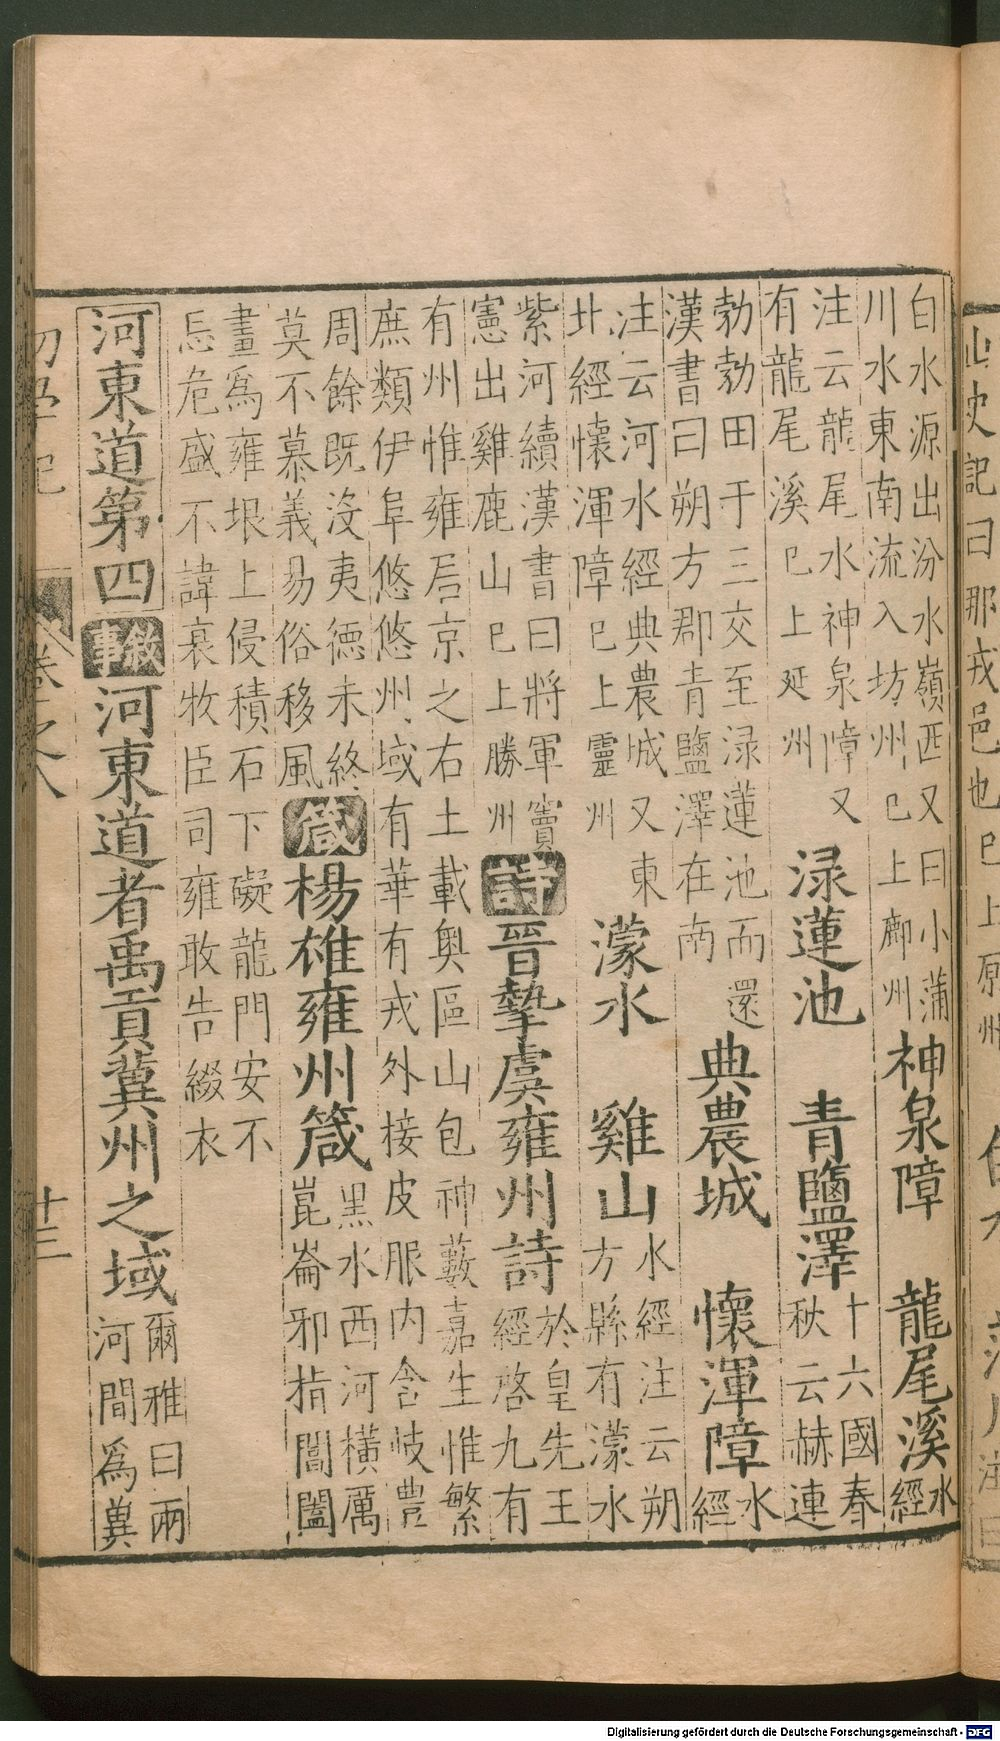 山史記曰那戎邑也已上原州
白水源出汾水嶺西又曰小蒲
川水東南流入坊州已上鄜州
神泉障　龍尾溪
水
經
注云龍尾水神泉障又
有龍尾溪已上延州
渌蓮池　青鹽澤
十六國春
秋云赫連
勃勃田于三交至渌蓮池而還
漢書曰朔方郡青鹽澤在南
典農城　懷渾障
水
經
注云河水經典農城又東
北經懷渾障已上靈州
濛水　雞山
水經注云朔
方縣有濛水
紫河續漢書曰將軍竇
憲出雞鹿山已上勝州
詩晉摯虞雍州詩
於皇先王
經啓九有
有州惟雍居京之右土載奥區山包神藪嘉生惟繁
庶類伊阜悠悠州域有華有戎外接皮服内含岐豊
周餘既没夷德未終
莫不慕義易俗移風
箴楊雄雍州箴
黒水西河橫厲
崑崙邪指閶闔
畫爲雍垠上侵積石下礙龍門安不
忘危盛不諱衰牧臣司雍敢告綴衣
河東道第四敘事河東道者禹貢冀州之域
爾雅曰兩
河間爲冀
初學記　卷之八　十三
Digitalisierung gefördert durch die Deutsche Forschungsgemeinschaft - DFG